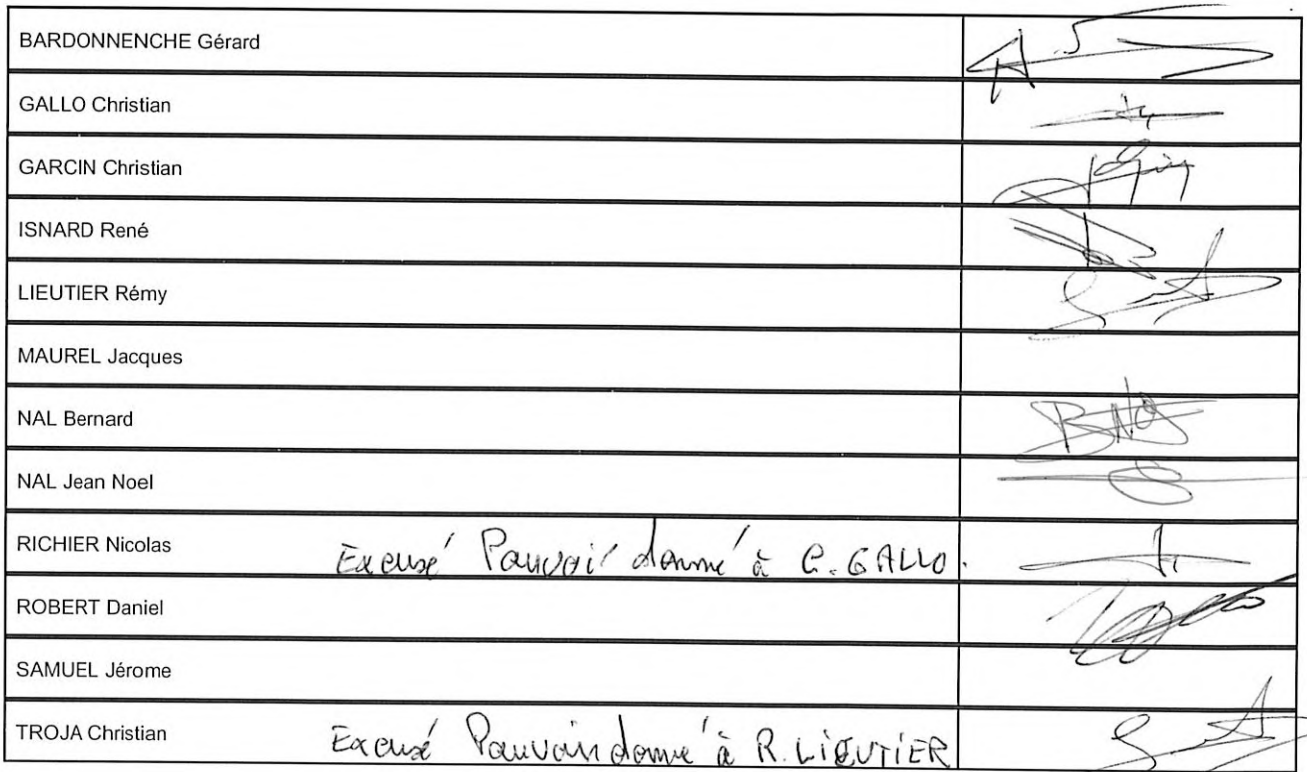 BARDONNENCHE Gérard
GALLO Christian
GARCIN Christian
ISNARD René
LIEUTIER Rémy
MAUREL Jacques
NAL Bernard
NAL Jean Noel
RICHIER Nicolas Excusé Pouvoir donné à C. GALLO.
ROBERT Daniel
SAMUEL Jérome
TROJA Christian Excusé Pouvoir donné à R. LIEUTIER